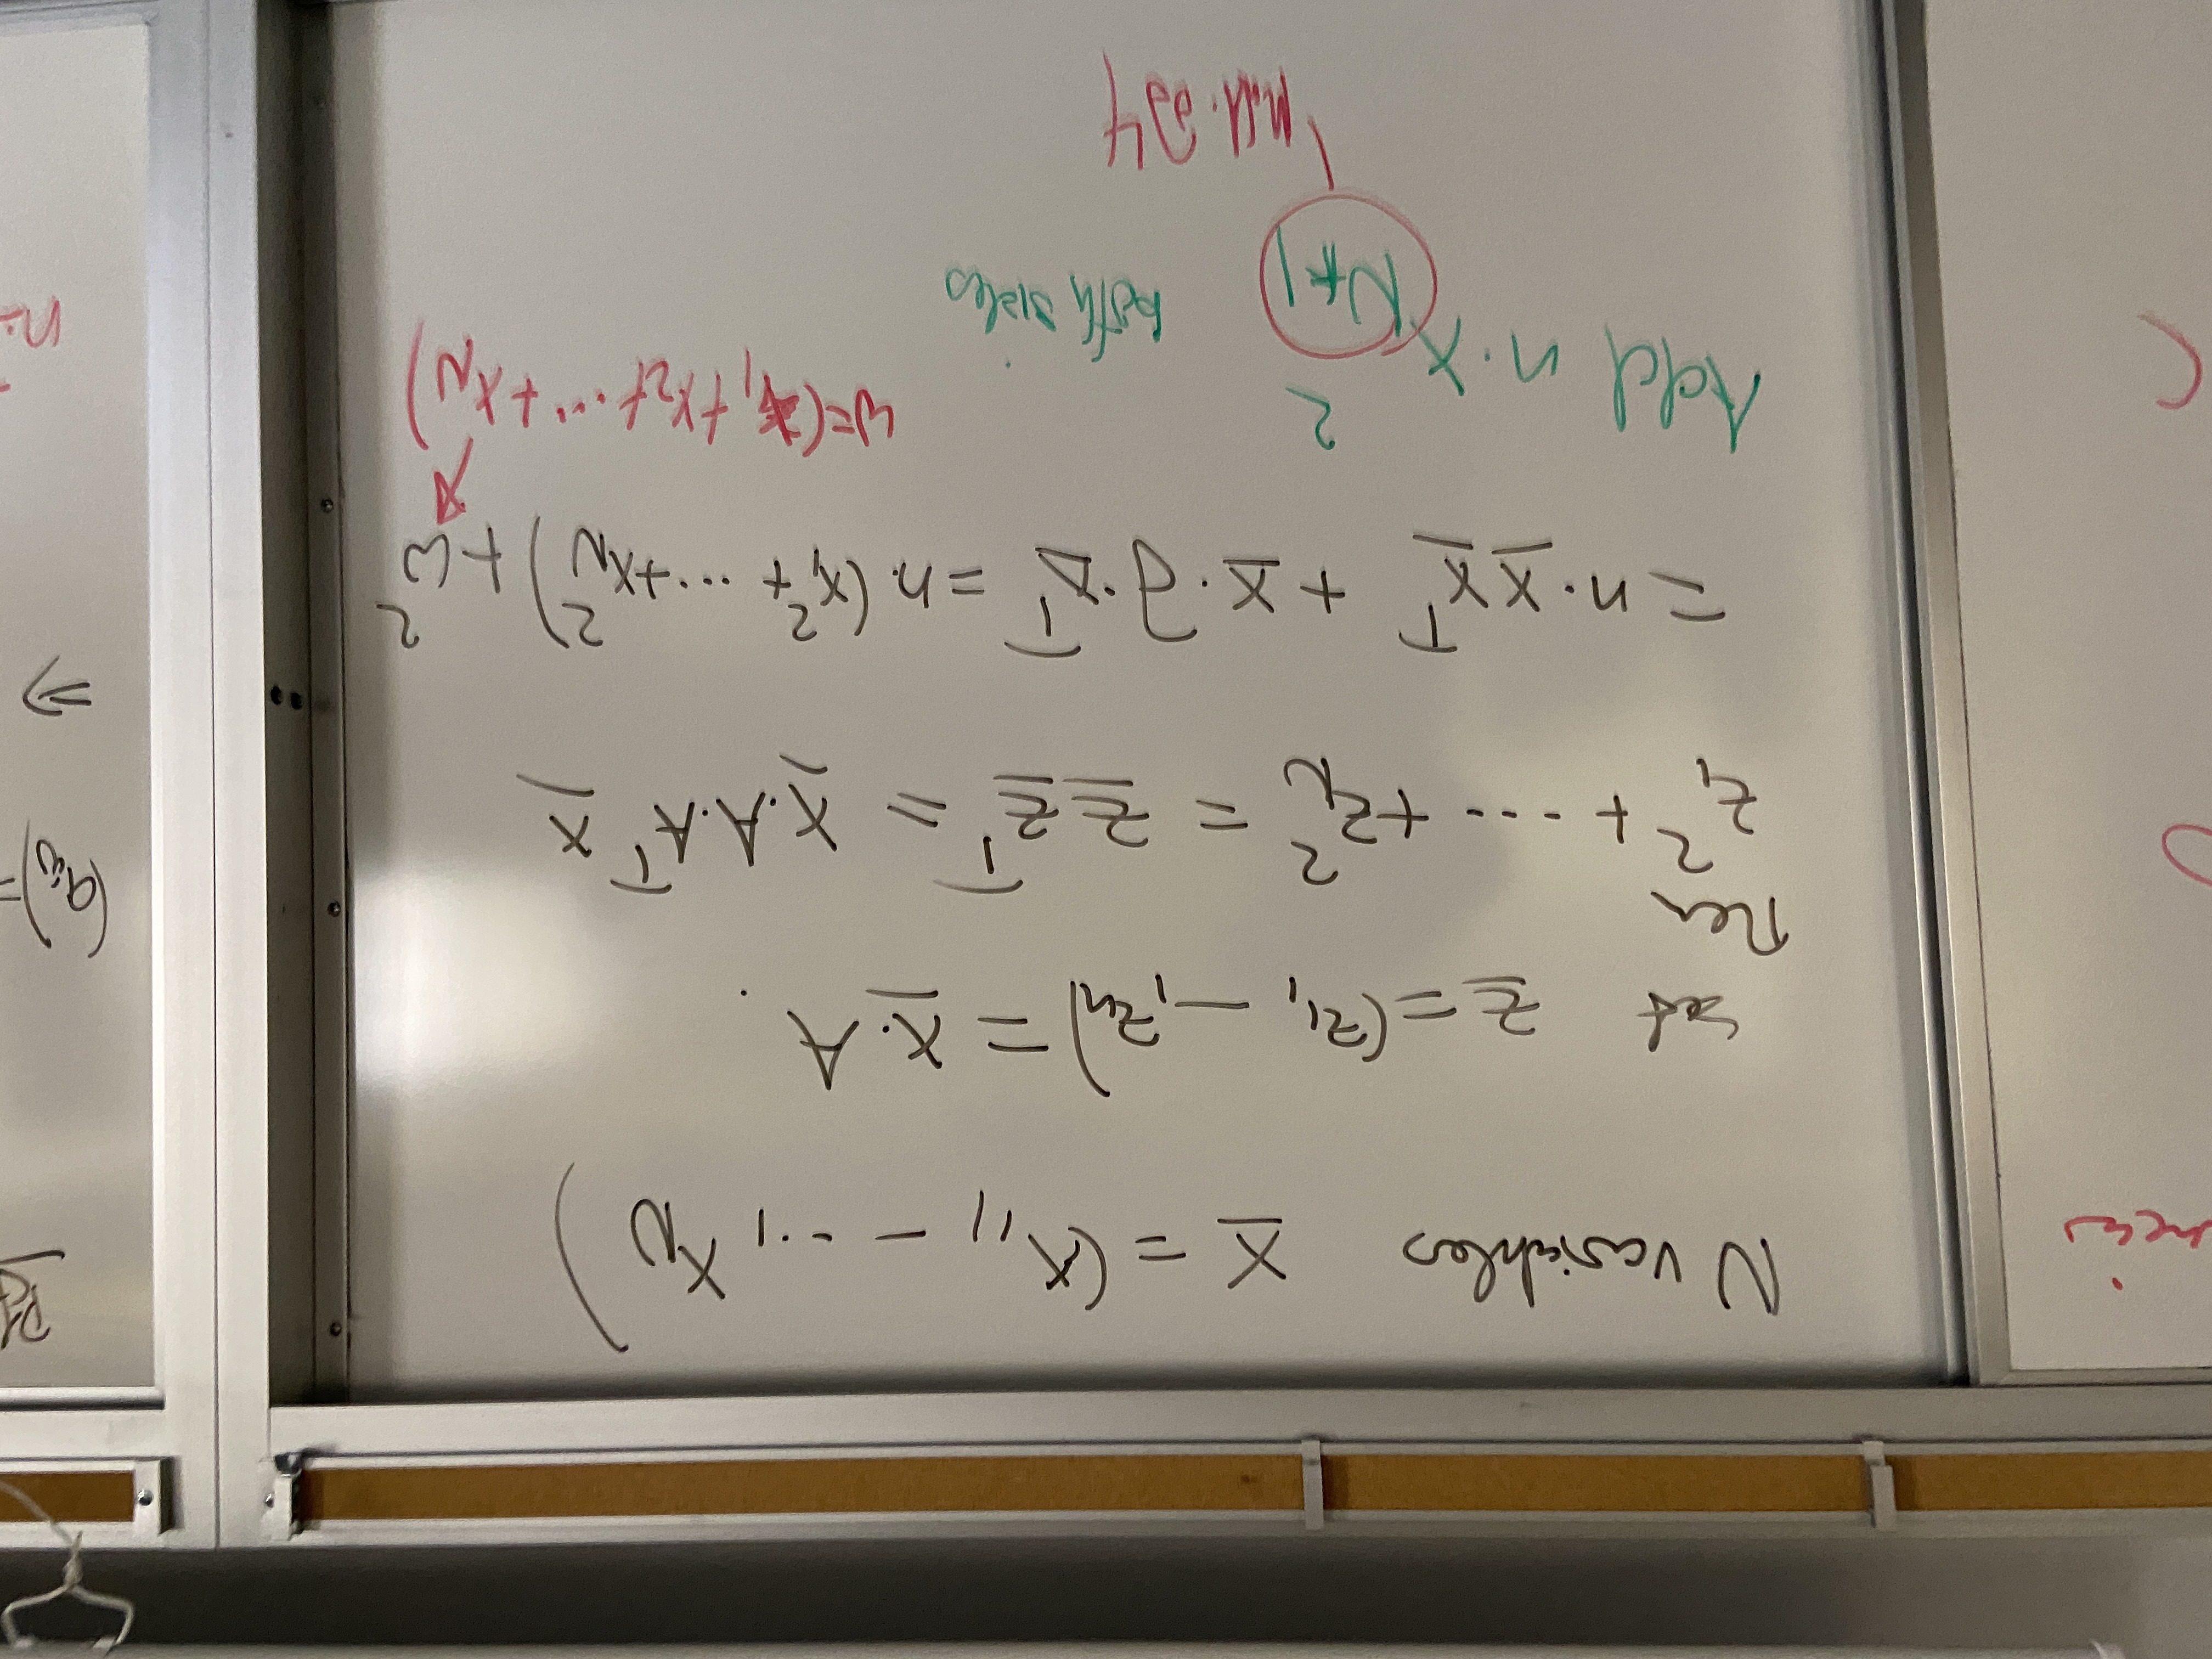 N variables x̄ = (x₁, - - ..., x_N)
set z̄ = (z₁, —, z_N) = x̄·A.
Then
z₁² + --- + z_N² = z̄ z̄ᵀ = x̄·A·Aᵀ x̄
= n·x̄x̄ᵀ + x̄·J·x̄ᵀ = n·(x₁² + ... + x_N²) + w²
w=(x₁+x₂+...+x_N)
Add n·x²_{N+1} both sides
mult. of 4